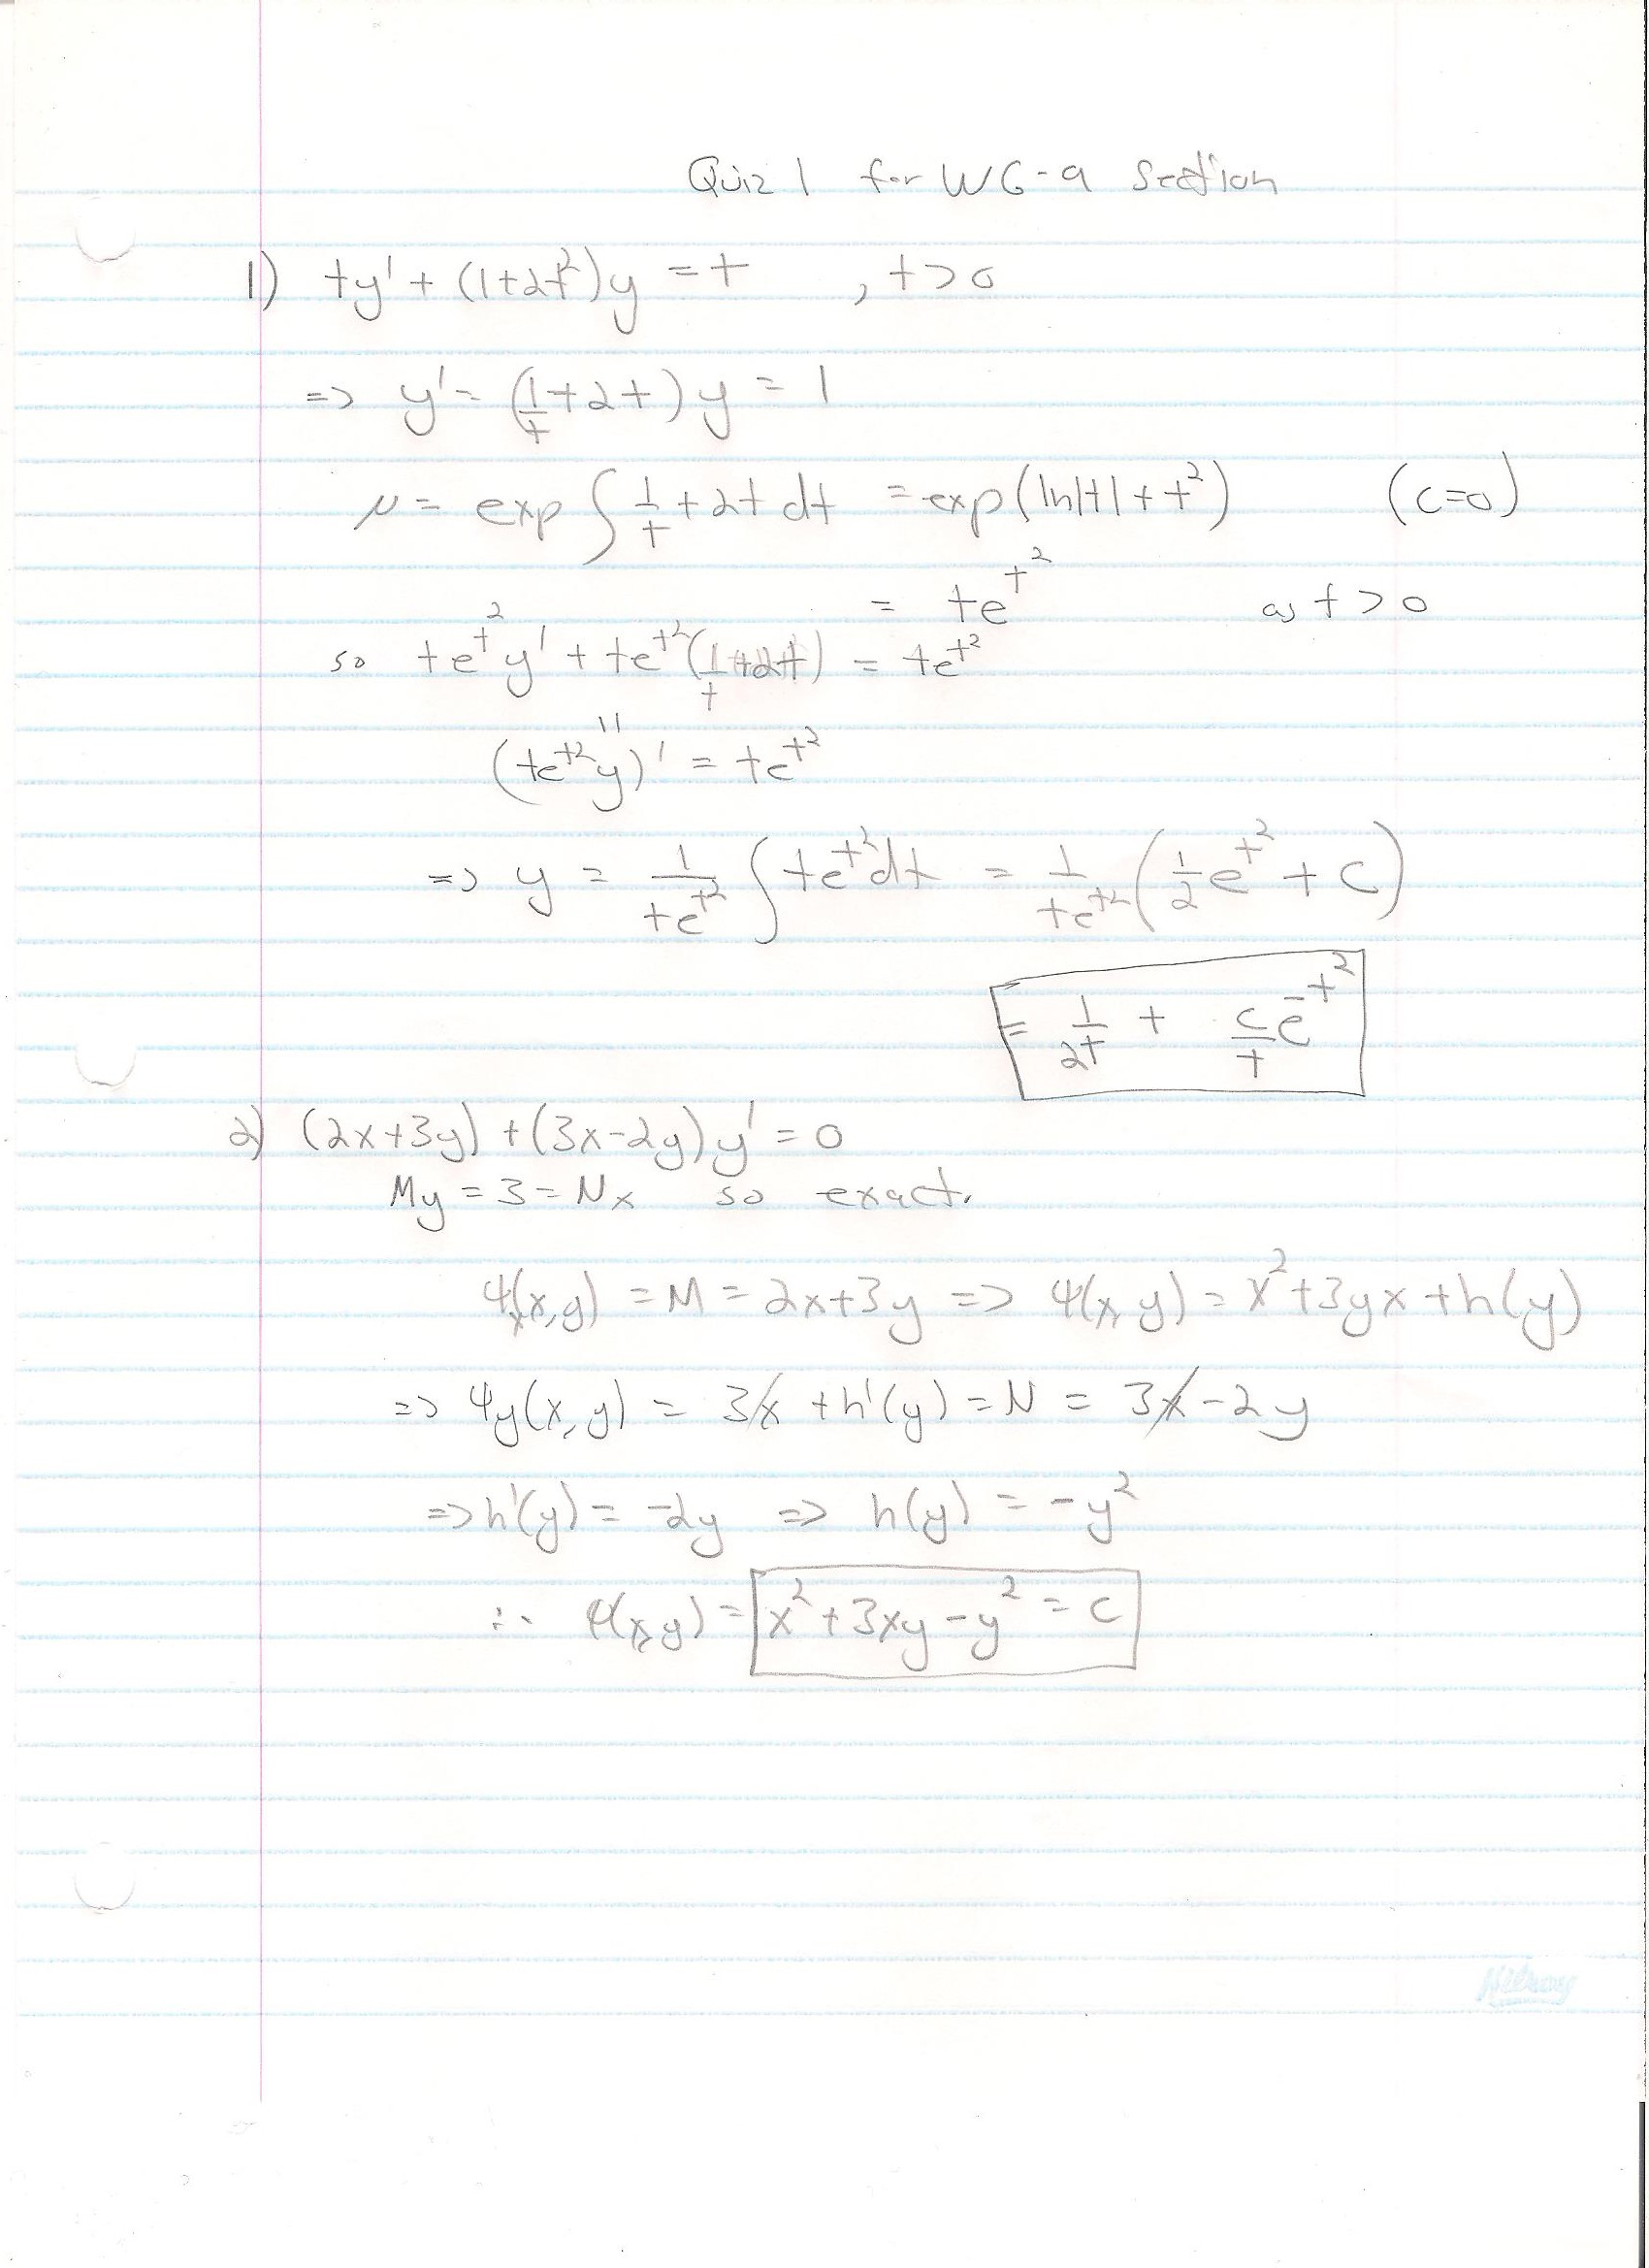 Quiz 1 for WG-9 Section
1) ty' + (1+2t²)y = t , t>0
=> y' = (1/t+2t)y = 1
μ = exp ∫ 1/t + 2t dt = exp(ln|t| + t²) (c=0)
= te^t² as t > 0
so te^t² y' + te^t² (1/t+2t) = te^t²
(te^t² y)' = te^t²
=> y = 1/te^t² ∫ te^t² dt = 1/te^t² (1/2 e^t² + C)
= 1/2t + c/t e^-t²
2) (2x+3y) + (3x-2y)y' = 0
My = 3 = Nx so exact.
Ψx(x,y) = M = 2x+3y => Ψ(x,y) = x²+3yx+h(y)
=> Ψy(x,y) = 3x + h'(y) = N = 3x-2y
=> h'(y) = -2y => h(y) = -y²
∴ Ψ(x,y) = x²+3xy-y² = c